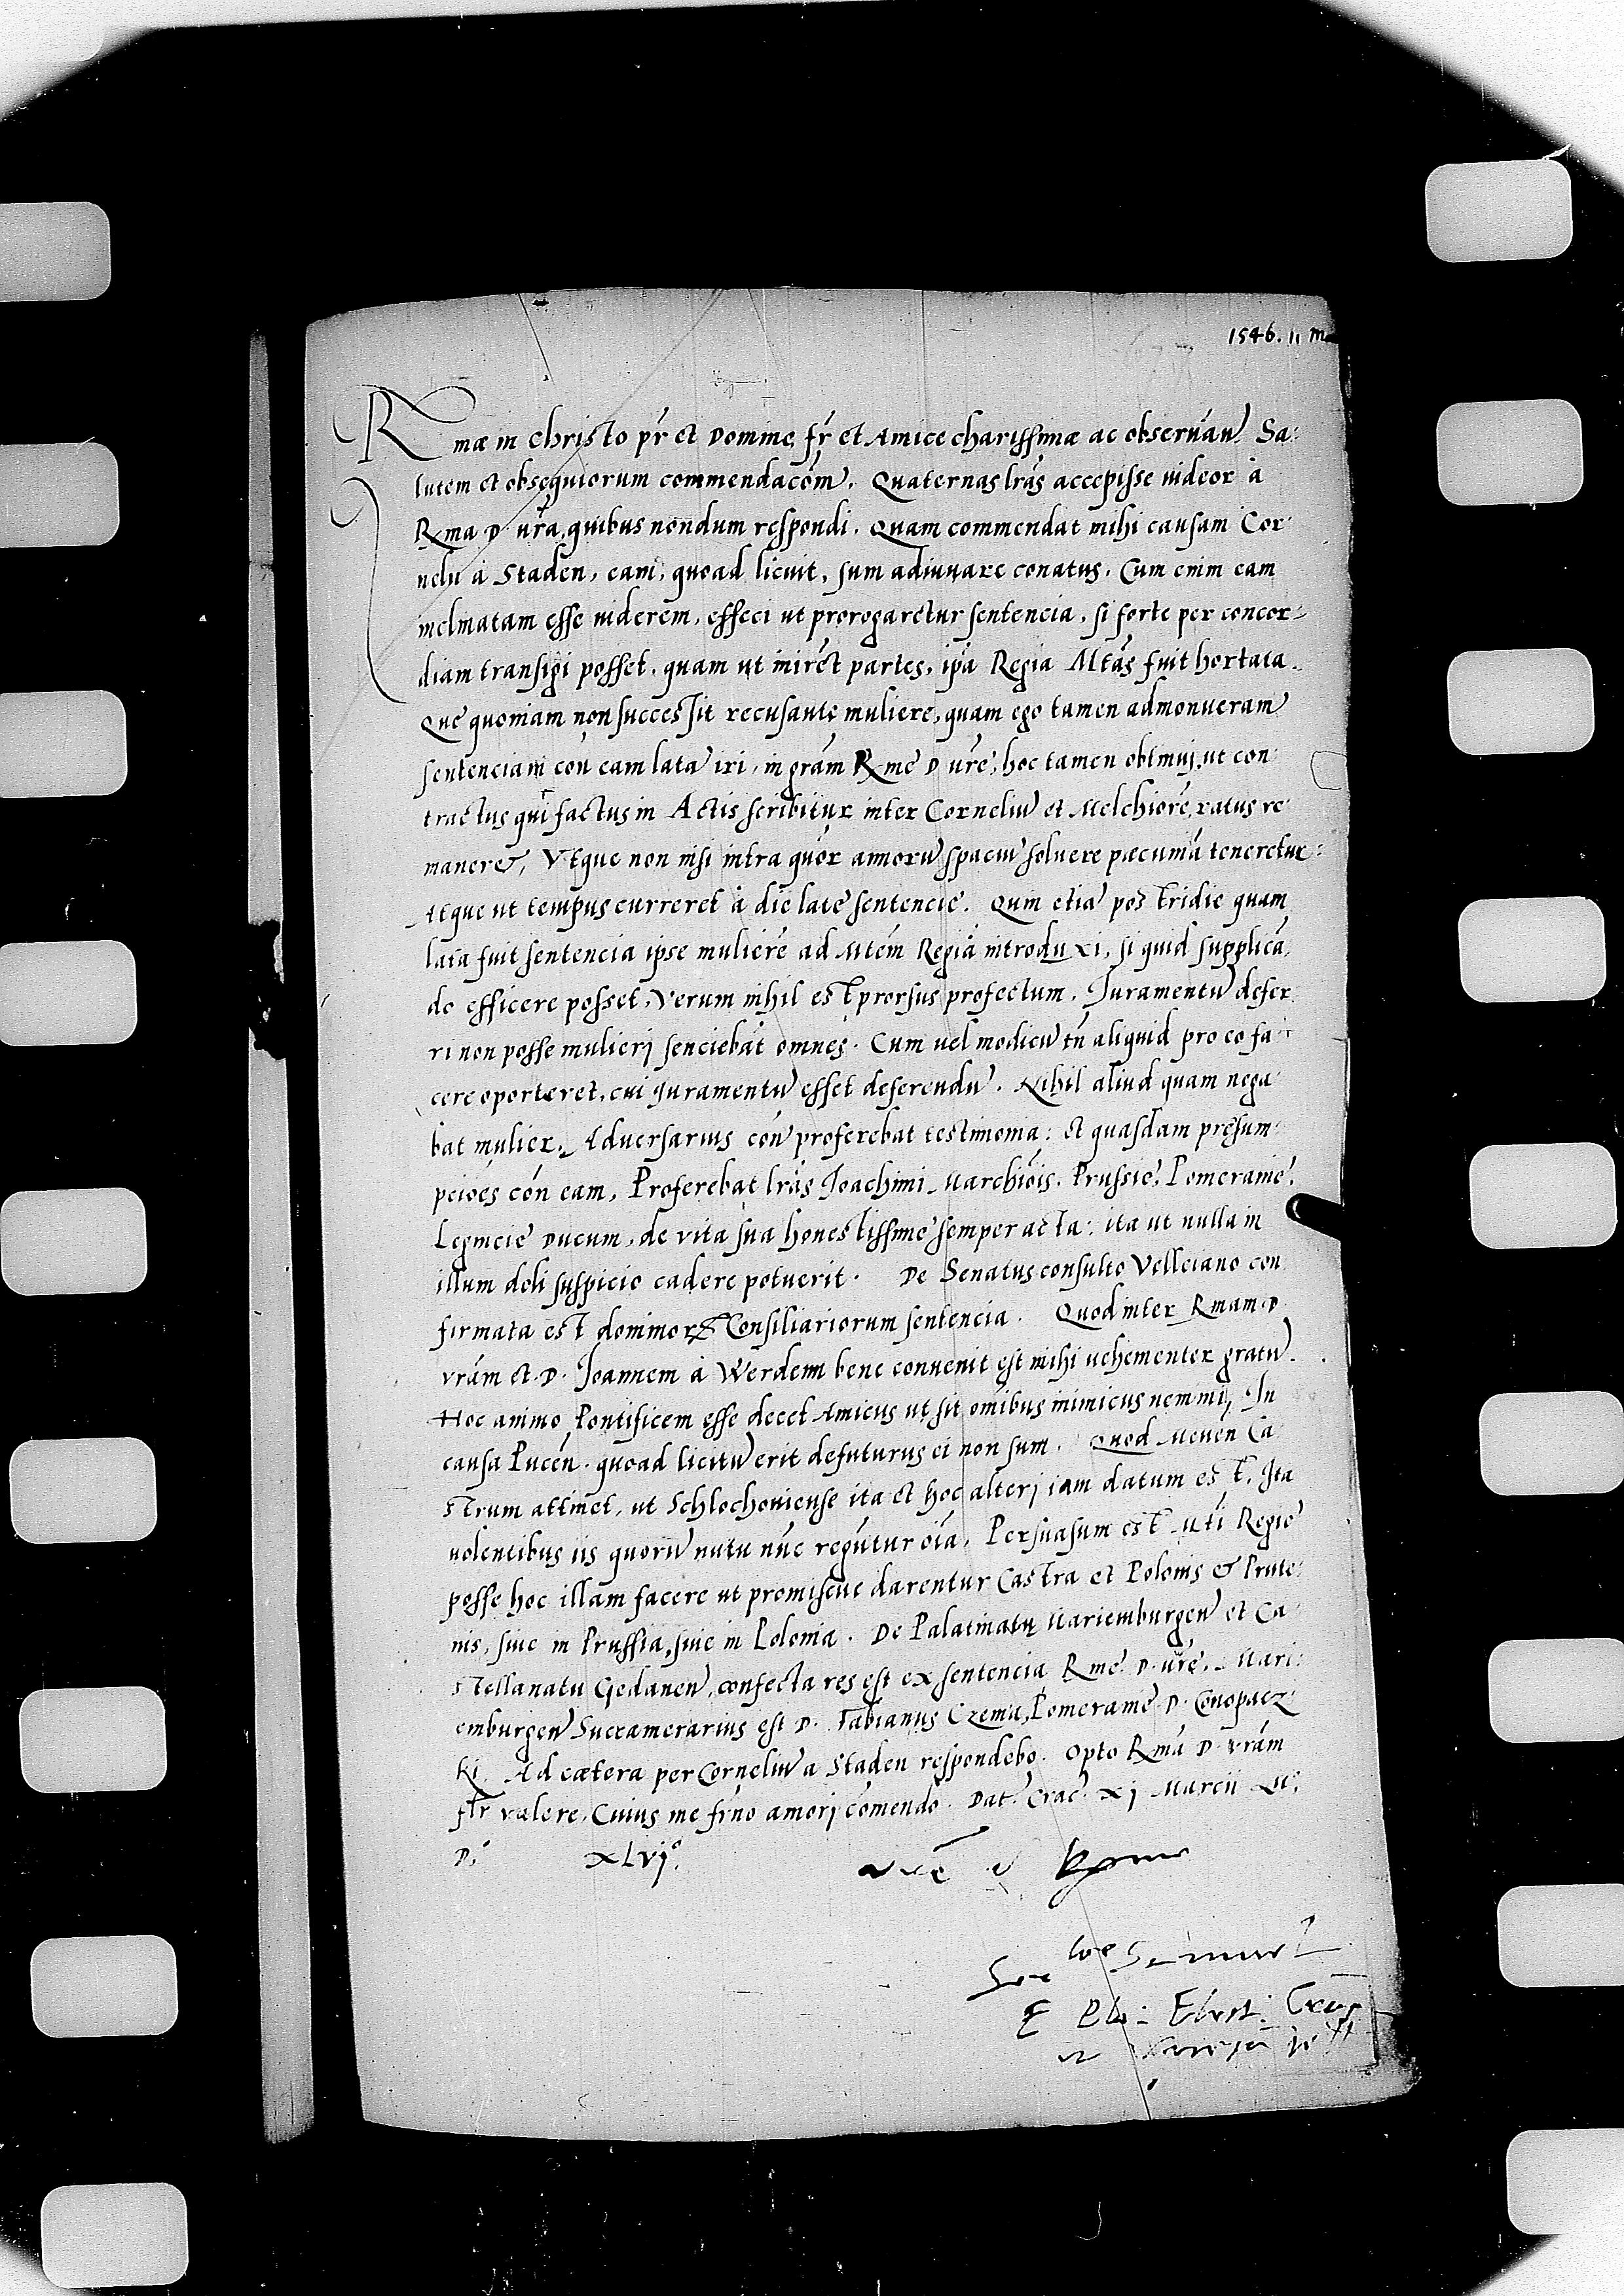 1546. 11 M
Rmæ in Christo pr̃ et Domine, fr̃ et Amice charissimæ ac observañ. Sa-
lutem et obsequiorum commendacõm. Quaternas lrãs accepisse uideor à
Rma D. urã, quibus nondum respondi. Quam commendat mihi causam Cor-
nelii à Staden, eam, quoad licuit, sum adiuuare conatus. Cum enim eam
inclinatam esse uiderem, effeci ut prorogaretur sentencia, si forte per concor-
diam transigi posset, quam ut inirẽt partes, ip̃a Regia Mtãs fuit hortata.
Quę quoniam non successit recusante muliere, quam ego tamen admonueram
sentenciam coñ eam latũ iri, in grãm Rme D. urẽ, hoc tamen obtinuj, ut con-
tractus qui factus in Actis scribitur inter Corneliũ et Melchiorẽ, ratus re-
maneret, Vtque non nisi intra quõr annorũ spaciũ soluere pæcuniã teneretur:
Atque ut tempus curreret à die latę sentencię. Quin etiã postridie quam
lata fuit sentencia ipse mulierẽ ad Mtẽm Regiã introduxi, si quid supplicã-
do efficere posset, Verum nihil est prorsus profectum. Juramentũ defer-
ri non posse mulierj senciebãt omnes. Cum uel modicũ tñ aliquid pro eo fa-
cere oporteret, cui Juramentũ esset deferendũ. Nihil aliud quam nega-
bat mulier. Aduersarius coñ proferebat testimonia: et quasdam pręsum-
pciões coñ eam, Proferebat lrãs Joachimi Marchiõis, Prussię, Pomeranię,
Legnicię Ducum, de vita sua honestissime semper acta: ita ut nulla in
illum doli suspicio cadere potuerit. De Senatusconsulto Velleiano con-
firmata est dominorꝝ Consiliariorum sentencia. Quod inter Rmam D.
vrãm et D. Joannem à Werdenn bene conuenit est mihi uehementer gratũ.
Hoc animo Pontificem esse decet Amicus ut sit om̃ibus inimicus neminj. In
causa Puceñ. quoad licitũ erit defuturus ei non sum. Quod Meuen Ca-
strum attinet, ut Schlochouiense ita et hoc alterj iam datum est. Ita
uolentibus iis quorũ nutu nũc regũtur oĩa. Persuasum est Mti Regię
posse hoc illam facere ut promiscue darentur Castra et Polonis & Prute-
nis, siue in Prussia, siue in Polonia. De Palatinatu Mariemburgeñ et Ca-
stellanatu Gedaneñ, confecta res est ex sentencia Rme D. urę. Mari-
emburgeñ Succamerarius est D. Fabianus Czema, Pomeranię D. Conopacz-
ki. Ad cætera per Corneliũ a Staden respondebo. Opto Rmã D. vrãm
fltr valere. Cuius me fr̃no amorj cõmendo. Dat. Crac. xj Marcii M.
D.° XLVj°.